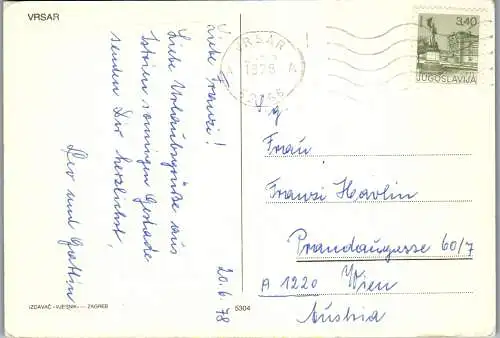 VRSAR
20.6.78
Liebe Franzi!
Liebe Urlaubsgrüße aus
Istrien sonnigen Gestade
senden Dir herzlichst,
Leo und Gattin
IZDAVAČ - »VJESNIK« — ZAGREB
5304
VRSAR
1978
3.40
JUGOSLAVIJA
Frau
Franzi Havlin
Prandaugasse 60/7
A 1220 Wien
Austria